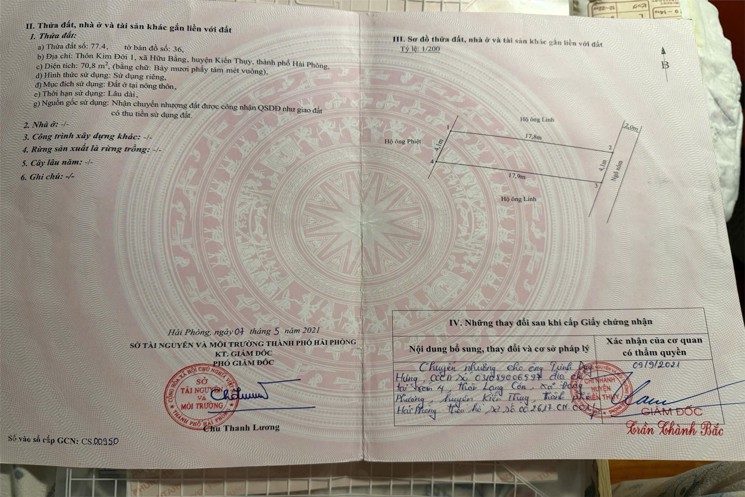 II. Thửa đất, nhà ở và tài sản khác gắn liền với đất
1. Thửa đất:
a) Thửa đất số: 77.4, tờ bản đồ số: 36,
b) Địa chỉ: Thôn Kim Đới 1, xã Hữu Bằng, huyện Kiến Thụy, thành phố Hải Phòng,
c) Diện tích: 70,8 m², (bằng chữ: Bảy mươi phẩy tám mét vuông),
d) Hình thức sử dụng: Sử dụng riêng,
đ) Mục đích sử dụng: Đất ở tại nông thôn,
e) Thời hạn sử dụng: Lâu dài,
g) Nguồn gốc sử dụng: Nhận chuyển nhượng đất được công nhận QSDĐ như giao đất
có thu tiền sử dụng đất.
2. Nhà ở: -/-
3. Công trình xây dựng khác: -/-
4. Rừng sản xuất là rừng trồng: -/-
5. Cây lâu năm: -/-
6. Ghi chú: -/-
Hải Phòng, ngày 07 tháng 5 năm 2021
SỞ TÀI NGUYÊN VÀ MÔI TRƯỜNG THÀNH PHỐ HẢI PHÒNG
KT. GIÁM ĐỐC
PHÓ GIÁM ĐỐC
SỞ
TÀI NGUYÊN
VÀ
MÔI TRƯỜNG
Chu Thanh Lương
Số vào sổ cấp GCN: CS.00950
III. Sơ đồ thửa đất, nhà ở và tài sản khác gắn liền với đất
Tỷ lệ: 1/200
B
Hộ ông Linh
2,0m
Hộ ông Phiệt
17,8m
4,1m
4,1m
4
17,9m
3
Ngõ xóm
Hộ ông Linh
IV. Những thay đổi sau khi cấp Giấy chứng nhận
Nội dung bổ sung, thay đổi và cơ sở pháp lý
Xác nhận của cơ quan
có thẩm quyền
Chuyển nhượng cho ông Trịnh
Hưng, CCCD số địa chỉ
tại xóm 4, thôn Lang Côn, xã Đông
Phương, huyện Kiến Thụy, thành phố
Hải Phòng theo hồ sơ số
09/9/2021
CHI NHÁNH
HUYỆN
KIẾN THỤY
GIÁM ĐỐC
Trần Thành Bắc